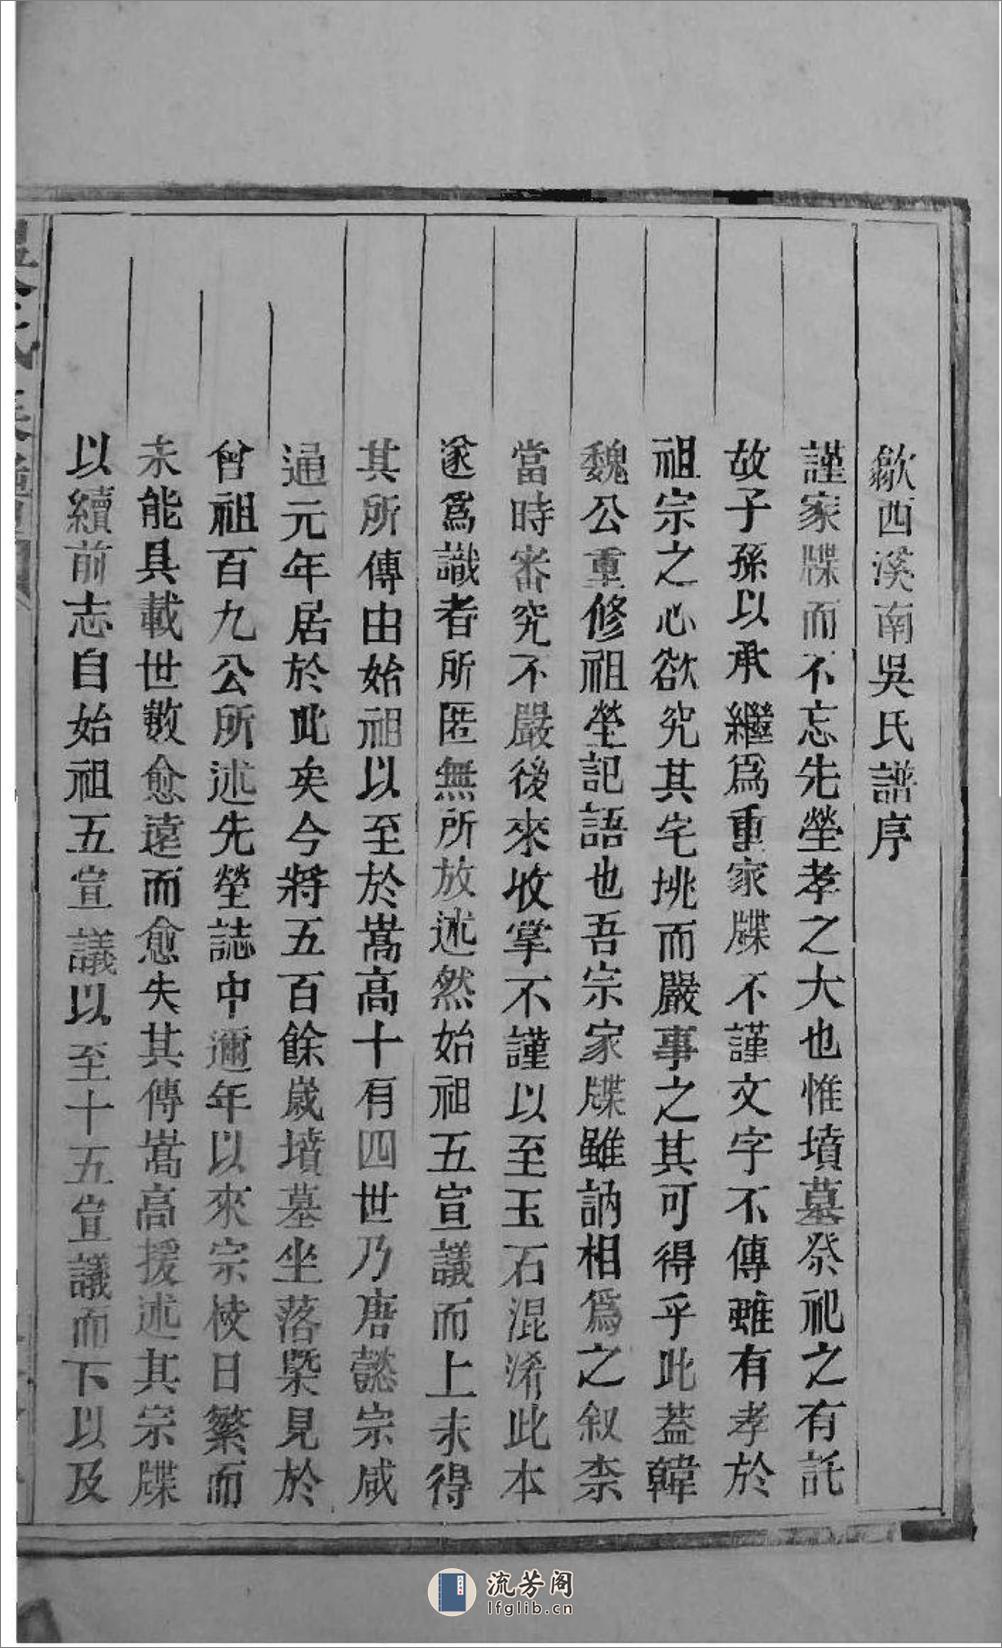 歙西溪南吳氏譜序
謹家牒而不忘先塋孝之大也惟墳墓祭祀之有託
故子孫以承繼為重家牒不謹文字不傳雖有孝於
祖宗之心欲究其宅挑而嚴事之其可得乎此蓋韓
魏公重修祖塋記語也吾宗家牒雖訥相為之叙柰
當時審究不嚴後來收掌不謹以至玉石混淆此本
遂為識者所匿無所放述然始祖五宣議而上未得
其所傳由始祖以至於嵩高十有四世乃唐懿宗咸
通元年居於此矣今將五百餘歲墳墓坐落槩見於
曾祖百九公所述先塋誌中邇年以來宗枝日繁而
未能具載世數愈遠而愈失其傳嵩高援述其宗牒
以續前志自始祖五宣議以至十五宣議而下以及
流芳阁
lfglib.cn